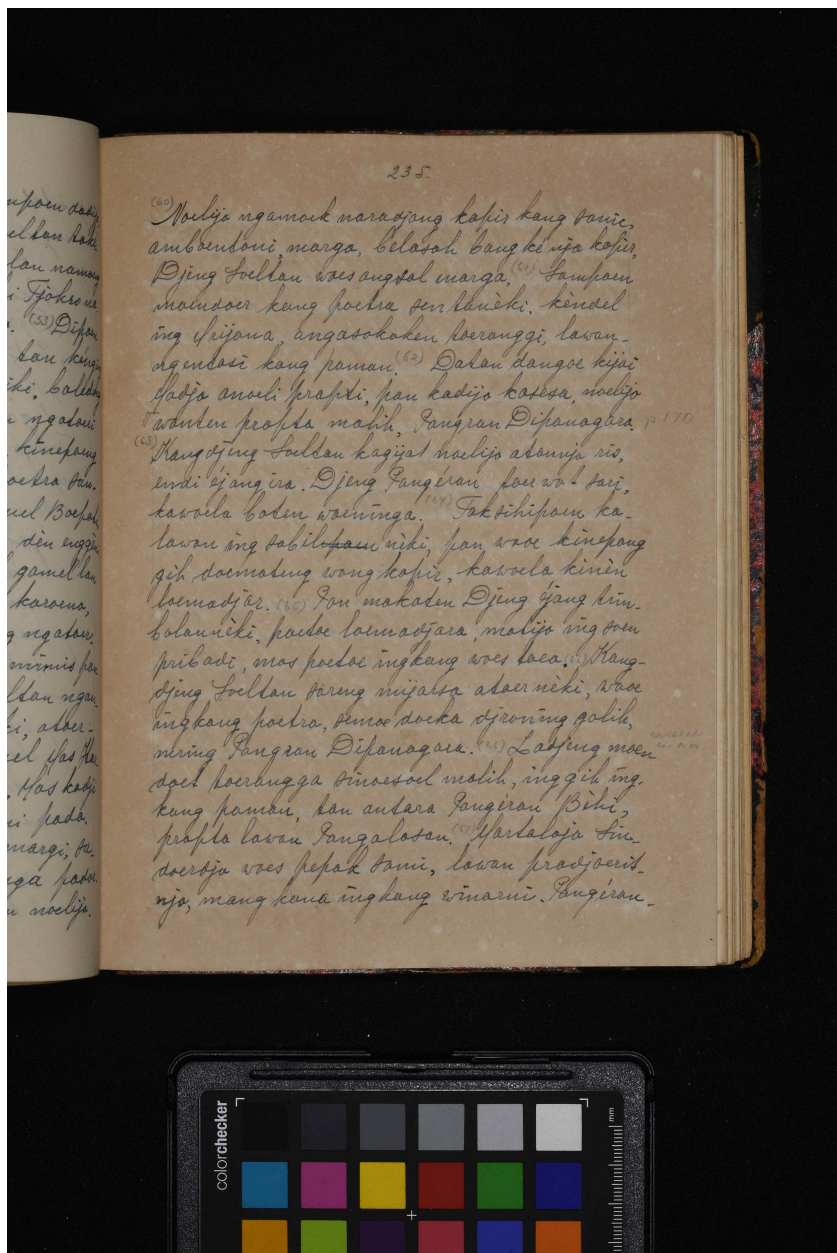 235.
(60) Noelijo ngamoek naradjang kapir kang sami,
amboentoni, marga, belasah bangke nja kapir,
Djeng Soeltan woes angsal marga, (61) Sampoen
moendoer kang poetra sentanèki, kèndel
ing Arijana, angasokaken toeranggi, lawan-
ngentosi kang paman. (62) Datan dangoe kijai
Madja anoeli prapti, pan kadija kasesa, noelija
wonten prapta malih, Pangran Dipanagara. p 170
(63) Kangdjeng Soeltan kagijat noelija atannja ris,
endi éjang ira. Djeng Pangéran toer wot sari,
kawoela boten woeninga. (64) Taksihipoen ka-
lawan ing sabilpoen nèki, pan waoe kinepang
gih doemateng wong kapir, kawoela kinèn
loemadjar. (65) Pan makaten Djeng éjang tim-
balannèki, poetoe loemadjara, matija ing soen
pribadi, mas poetoe ingkang woes toea. Kang-
djeng Soeltan sareng mijarsa atoer nèki, waoe
ingkang poetra, semoe doeka djroning galih,
mring Pangran Dipanagara. Ladjeng moen
doet toerangga sinoesoel malih, inggih ing-
kang paman, tan antara Pangéran Béhi,
prapta lawan Pangalasan. Martalaja Sin-
doerdja woes pepak sami, lawan pradjoerit-
nja, mangkana ingkang winarni. Pangéran-
npoen dadi
lan namang
i Tjokro na
(53) Dipan
hi, baledeg
ngatoeri
kinepang
poetra san-
uel Boepat
dèn enggèn
gamel lan
karoena,
g ngatoer-
mimis pan
ltan ngan-
ki, atoer-
el Mas Kar
Mas kadji
i pada.
margi, sa-
nga pada-
n noelija.
colorchecker
mm